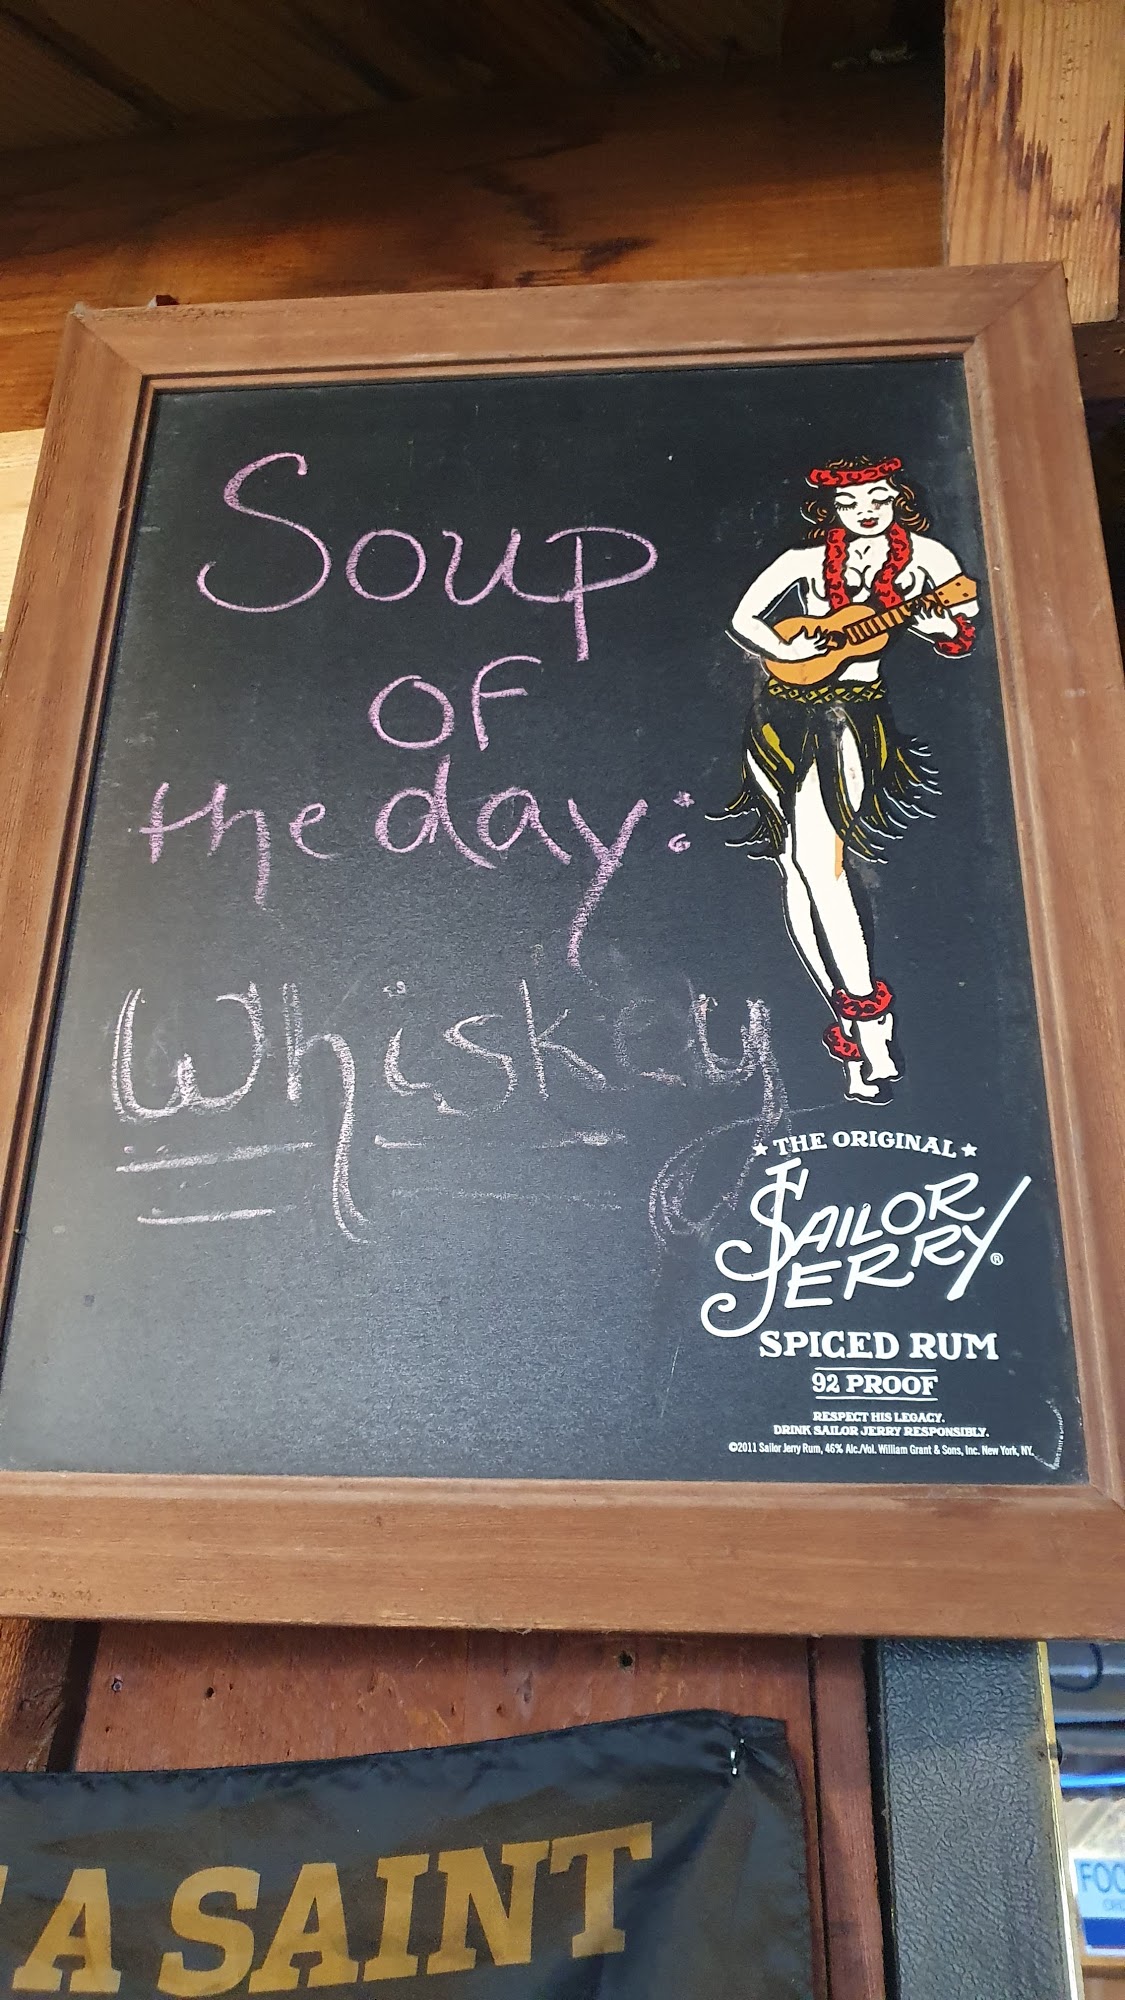 Soup
of
the day:
Whiskey
★ THE ORIGINAL ★
SAILOR
JERRY®
SPICED RUM
92 PROOF
RESPECT HIS LEGACY.
DRINK SAILOR JERRY RESPONSIBLY.
©2011 Sailor Jerry Rum, 46% Alc./Vol. William Grant & Sons, Inc. New York, NY.
A SAINT
FOO